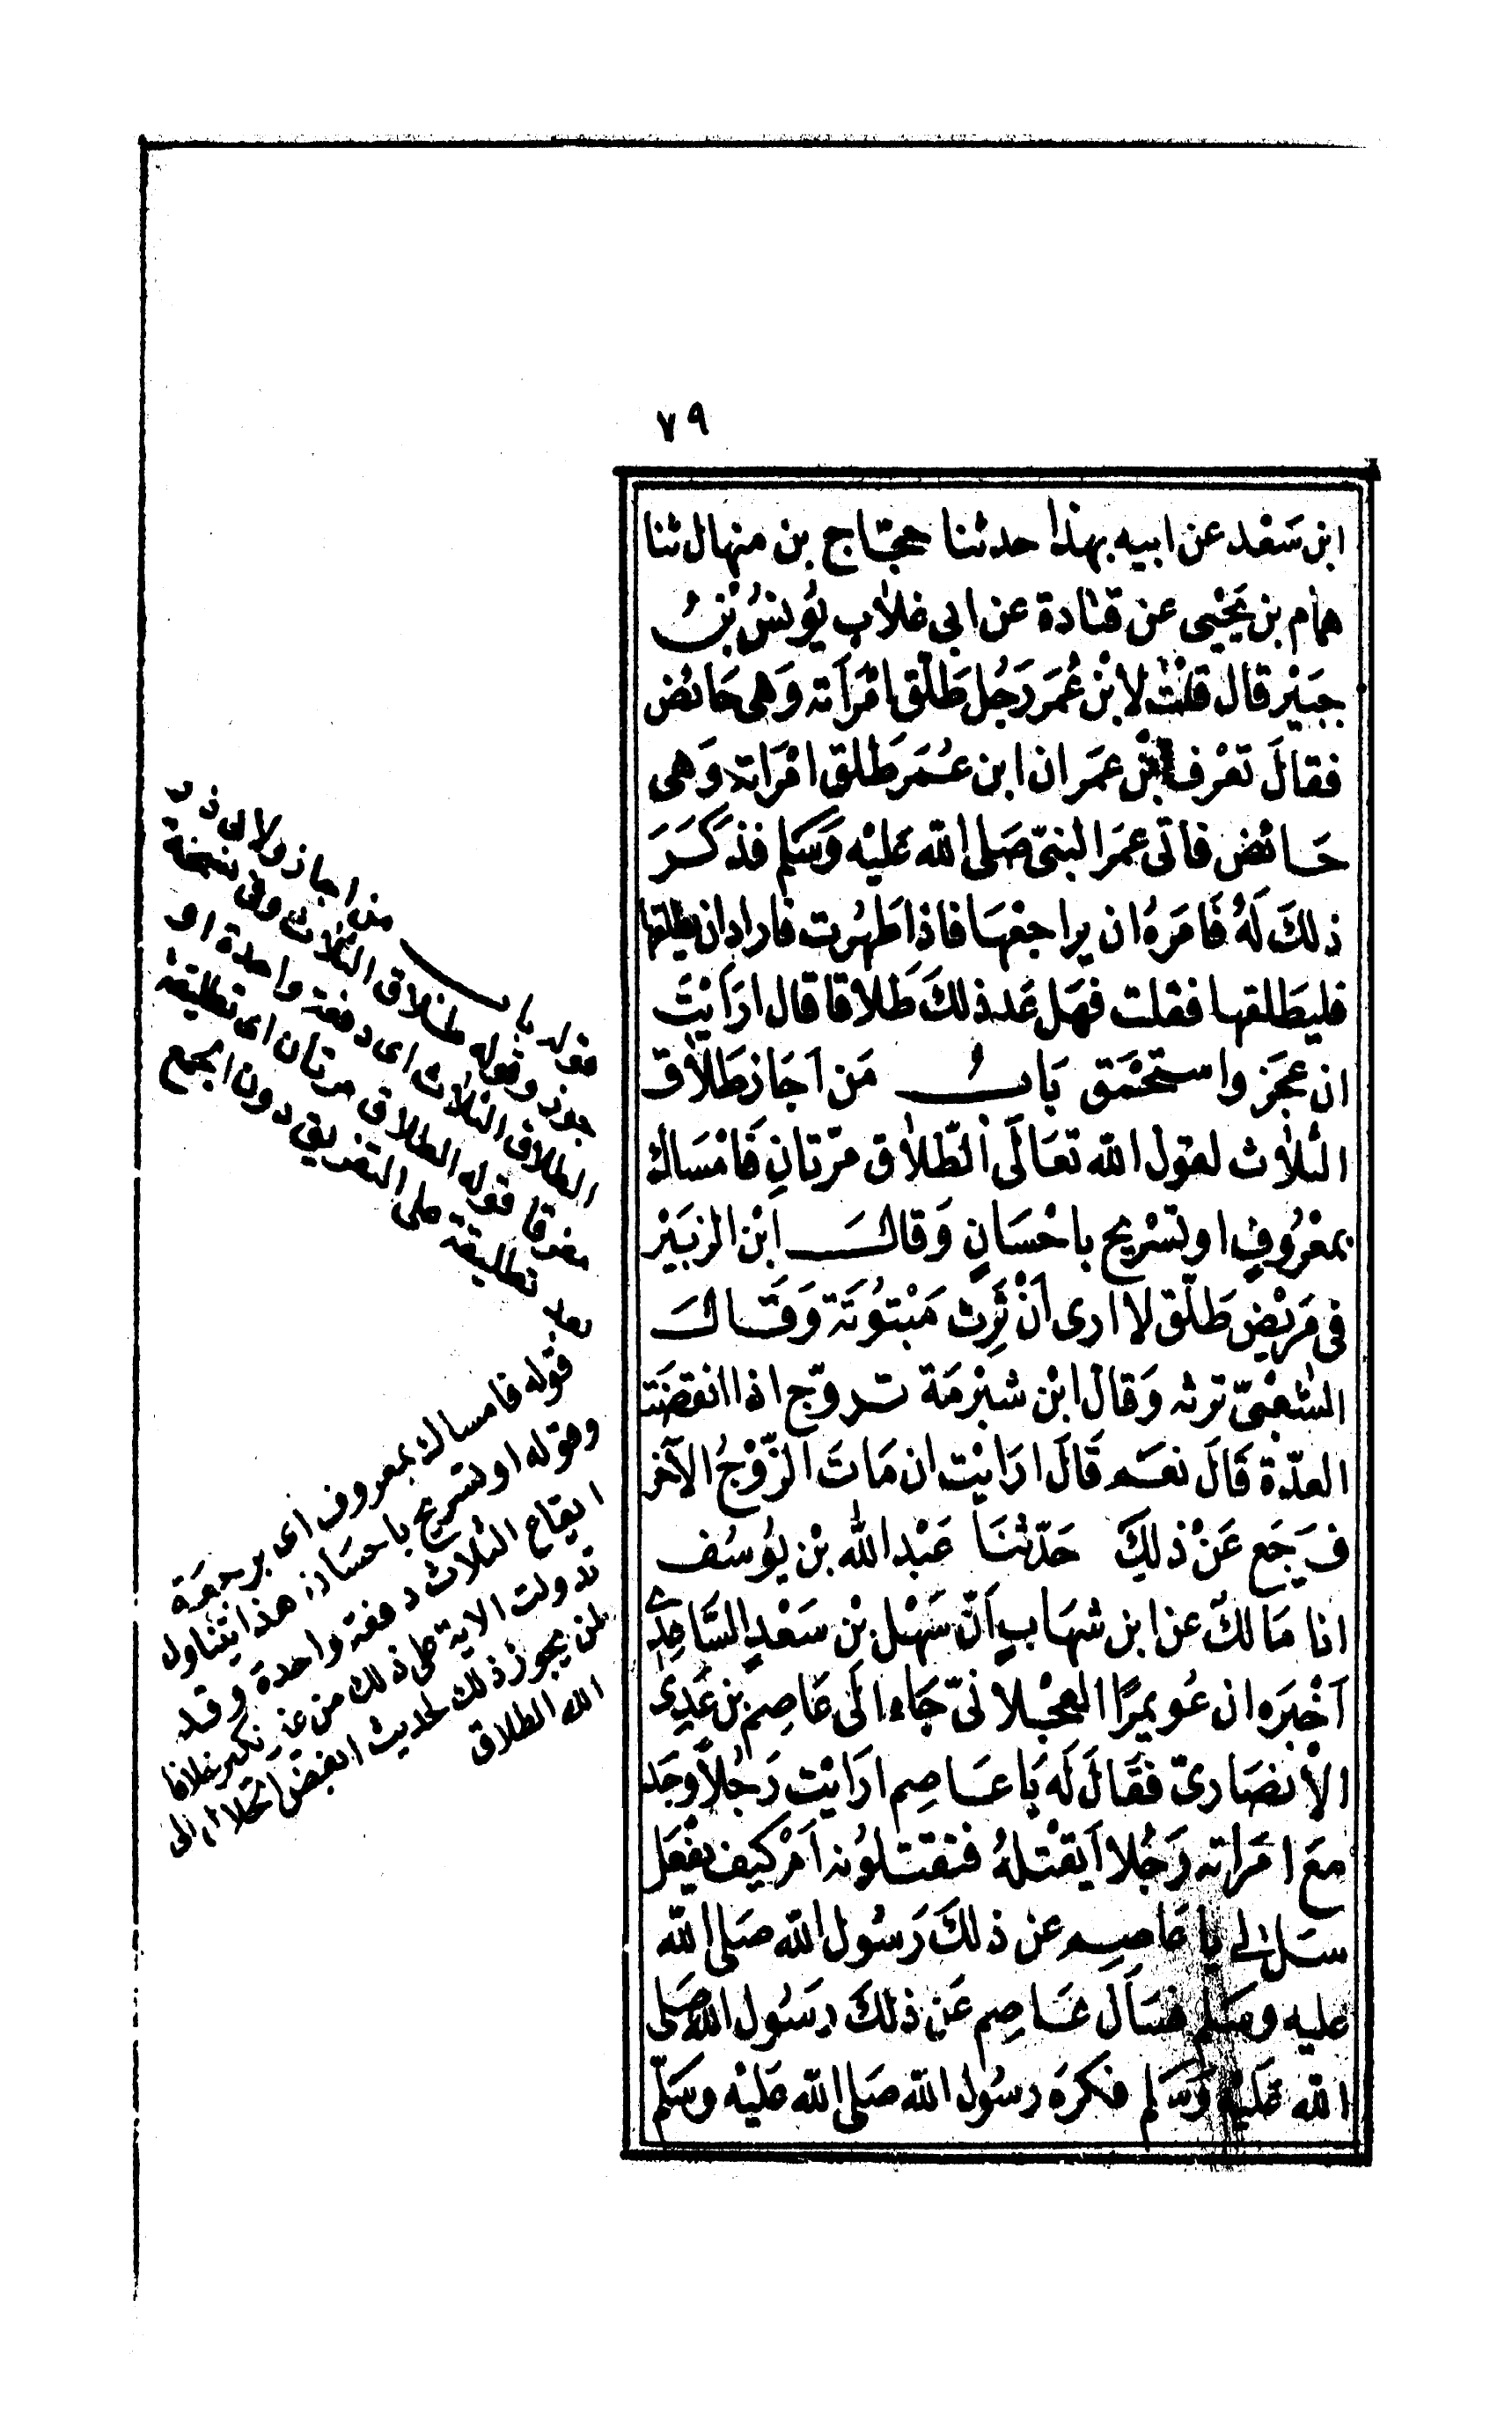 ٧٩
ابن سَعْد عن ابيه بهذا حدثنا حجّاج بن منهال ثنا
همام بن يَحْيى عن قتادة عن ابى غلاب يُونسُ بْنُ
جبَيْر قال قلتُ لابْن عُمَر رَجُل طَلّق امْرَأته وَهى حَائض
فقالَ تعْرف ابْن عمَر ان ابن عُمَر طَلق امْرَاته وَهى
حَائض فاتى عمَر النبىّ صَلى الله عليْه وَسَلم فذكَرَ
ذلكَ لَهُ فَامَرهُ ان يراجعْهَا فاذا طَهُرت فاراد ان يطلقها
فليطَلقها فقلت فهَل عَد ذلكَ طَلاقا قال ارَايْتَ
ان عجَز واستحْمَق بَابُ مَن اجَاز طَلَاق
الثلاث لقول الله تعَالَى الطّلاق مرّتانِ فَامْسَاك
بمعْرُوفٍ او تسْريح باحْسَانٍ وَقالَ ابْن الزبَيْر
فى مَريْض طَلّق لا ارى اَنْ تَرِث مَبْتوُتَة وَقَالَ
الشعْبىّ ترثه وَقال ابْن شبْرمَة تزوّج اذا انقضَت
العدّة قَالَ نعَم قَالَ ارَايْت ان مَاتَ الزّوْجُ الآخر
فرَجَع عَنْ ذلِكَ حَدّثنَا عَبْد الله بْن يوُسُف
انا مَالكٌ عن ابن شهَابٍ اَنّ سَهْل بْن سَعْدٍ السَّاعِدى
اَخْبَره ان عُويمرًا العجْلانىّ جَاء الَى عَاصِم بن عَدِى
الاْنصَارىّ فقَالَ لَه يَا عَاصِم ارَايْت رَجُلاً وجَد
مَعَ امَراته رَجُلا اَيقْتلهُ فتقتلوُنه اَمْ كيف يفْعَل
سَل لى يا عَاصِم عن ذلكَ رَسُول الله صَلى الله
عليه وسَلم فسَاَلَ عَاصِم عَن ذلكَ رسَوُل الله صَلى
الله عَليْهِ وَسَلم فكرهَ رسُول الله صَلى الله عَليْه وسَلّم
قوله باب من اجاز ولابى ذر
جوز وقوله طلاق الثلاث وفى نسخة
الطلاق الثلاث اى دفعة واحدة او
مفرقا قوله الطلاق مرتان اى تطليقة
بعد تطليقة على التفريق دون الجمع
قوله فامساك بمعروف اى برجعَة
وقوله او تسريح باحسان هذا يتناول
ايقاع الثلاث دفعة واحدة وقد
دولت الاية على ذلك من غير نكير خلافا
لمن يجوز ذلك لحديث ابغض الحلال الى
الله الطلاق